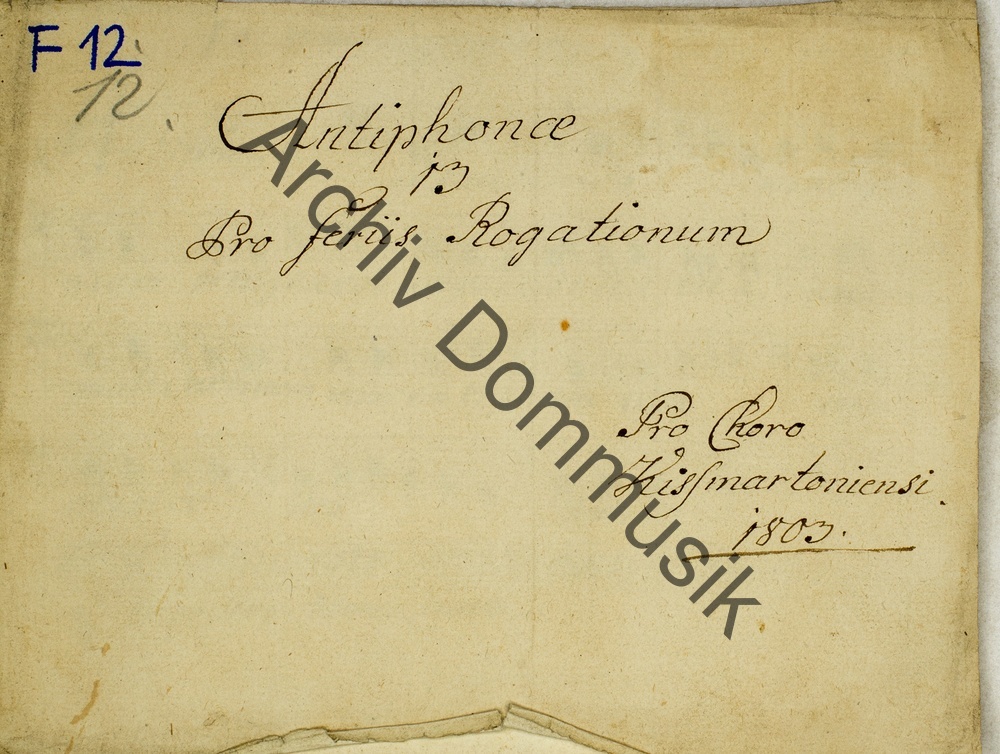 F 12.
12.
Antiphonæ
13
Pro Feriis Rogationum
Pro Choro
Kisſmartoniensi.
1803.
Archiv Dommusik